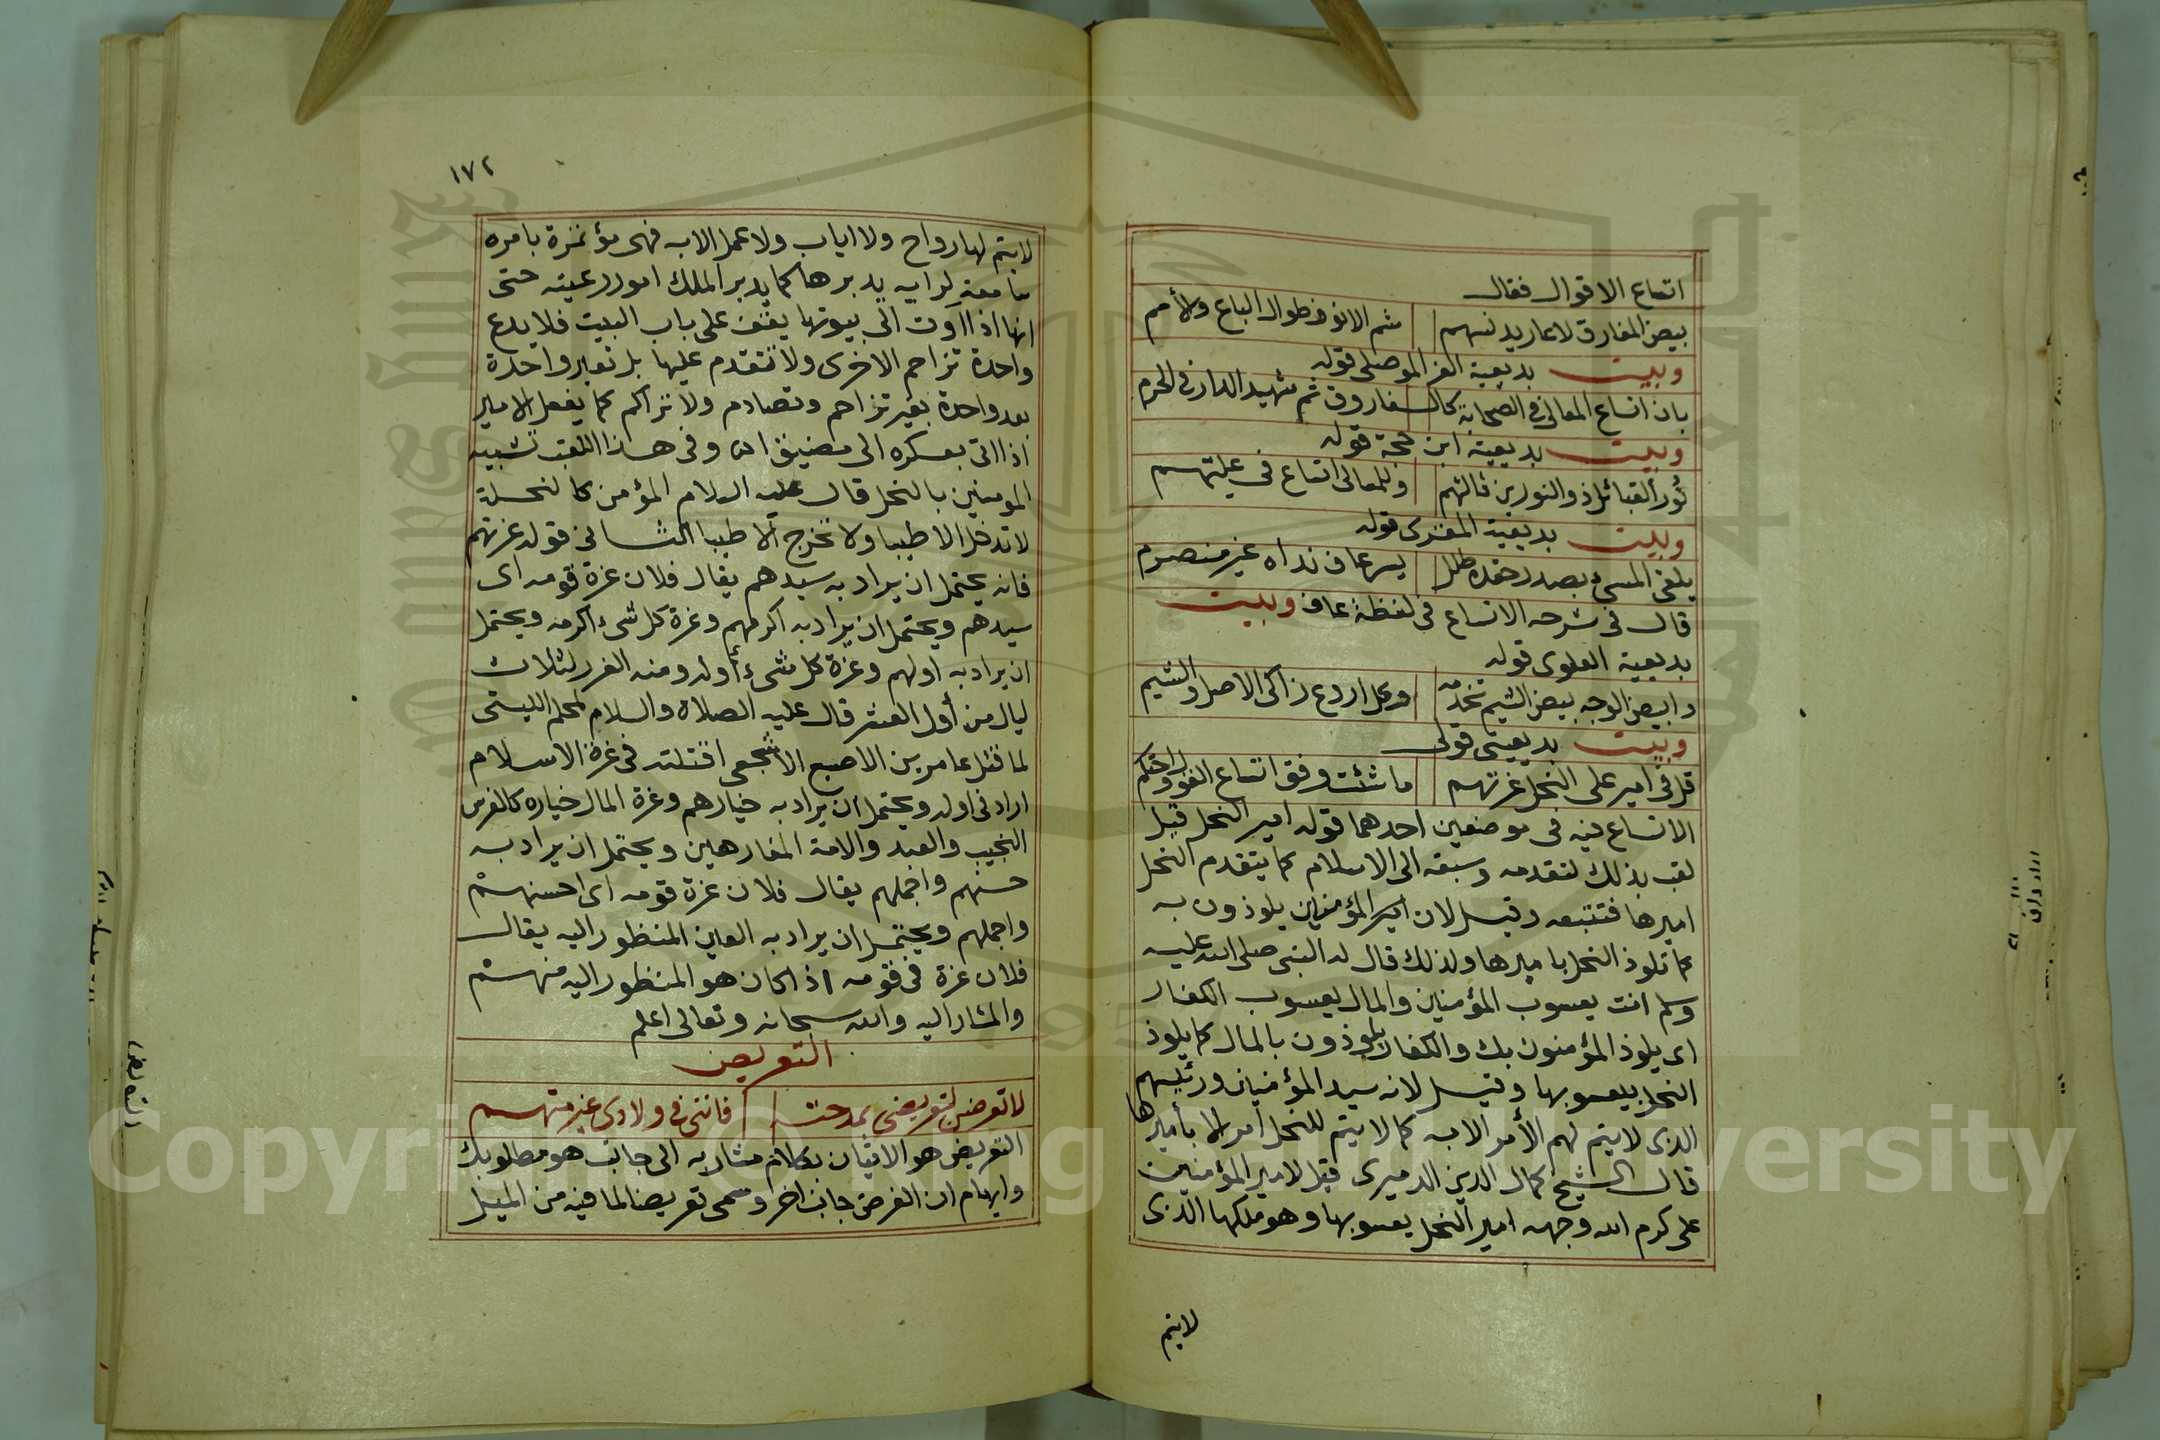 اتساع الاقوال فقال
بيض المفارق لا عار يدنسهم شم الانوف طوال الباع والأمم
وبيت بديعية العز الموصلي قوله
بان اتساع المعالي في الصحابة كالفاروق ثم شهيد الدار في الحرم
وبيت بديعية ابن حجة قوله
نور القبائل ذو النورين ثالثهم وللمعالي اتساع في عليتهم
وبيت بديعية المقري قوله
يلقى المسيء بصدر حقده طلل يسر عاف نداه غير منصرم
قال في شرحه الاتساع في لفظة عاف وبيت
بديعية العلوي قوله
وابيض الوجه بيض الشيم تخدمه وكل اروع زاكي الاصل والشيم
وبيت بديعيتي قولي
قل في امير على النحل غرتهم ما شئت وفق اتساع القول واحتكم
الاتساع فيه في موضعين احدهما قوله امير النحل قيل
لقب بذلك لتقدمه وسبقه الى الاسلام كما يتقدم النحل
اميرها فتتبعه وقيل لان امير المؤمنين يلوذون به
كما تلوذ النحل باميرها ولذلك قال له النبي صلى الله عليه
وسلم انت يعسوب المؤمنين والمال يعسوب الكفار
اى يلوذ المؤمنون بك والكفار يلوذون بالمال كما يلوذ
النحل بيعسوبها وقيل لانه سيد المؤمنين ورئيسهم
الذى لا يتم لهم الأمر الا به كما لا يتم للنحل أمر الا بأميرها
قال الشيخ كمال الدين الدميرى قيل لامير المؤمنين
على كرم الله وجهه امير النحل يعسوبها وهو ملكها الذى
لايتم
١٧٢
لا يتم لها رواح ولا اياب ولا عمل الا به فهى مؤتمرة بامره
سامعة لرايه يدبرها كما يدبر الملك امور رعيته حتى
انها اذا آوت الى بيوتها يقف على باب البيت فلا يدع
واحدة تزاحم الاخرى ولا تتقدم عليها بل تعبر واحدة
بعد واحدة بغير تزاحم وتصادم ولا تراكم كما يفعل الامير
اذا اتى بعسكره الى مضيق اه وفى هذا اللقب تشبيه
المومنين بالنحل قال عليه السلام المؤمن كالنحلة
لا تدخل الا طيبا ولا تخرج الا طيبا الثانى قوله غرتهم
فانه يحتمل ان يراد به سيدهم يقال فلان غرة قومه اى
سيدهم ويحتمل ان يراد به اكرمهم وغرة كل شىء اكرمه ويحتمل
ان يراد به اولهم وغرة كل شىء أوله ومنه الغرر لثلاث
ليال من أول الشهر قال عليه الصلاة والسلام لمحلم الليثى
لما قتل عامر بن الاضبع الاشجعى اقتلته فى غرة الاسلام
اراد فى اوله ويحتمل ان يراد به خيارهم وغرة المال خياره كالفرس
النجيب والعبد والامة الفارهين ويحتمل ان يراد به
حسنهم واجملهم يقال فلان غرة قومه اى احسنهم
واجملهم ويحتمل ان يراد به العين المنظور اليه يقال
فلان غرة فى قومه اذا كان هو المنظور اليه منهم
والمشار اليه والله سبحانه وتعالى اعلم
التعريض
لا تعرض لتعريضى بمدحته فاننى فى ولادى غير متهم
التعريض هو الاتيان بكلام مشار به الى جانب هو مطلوبك
وايهام ان الغرض جانب اخر وسمى تعريضا لما فيه من الميل
Copyright © King Saud University